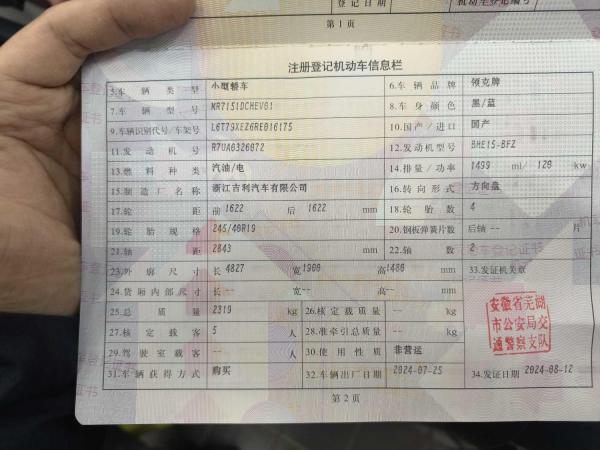 登记日期 机动车登记编号
第1页
注册登记机动车信息栏
5.车辆类型 小型轿车 6.车辆品牌 领克牌
7.车辆型号 MR7151DCHEV01 8.车身颜色 黑/蓝
9.车辆识别代号/车架号 L6T79XEZ6RE016175 10.国产/进口 国产
11.发动机号 R7UA0326072 12.发动机型号 BHE15-BFZ
13.燃料种类 汽油/电 14.排量/功率 1499 ml/ 120 kw
15.制造厂名称 浙江吉利汽车有限公司 16.转向形式 方向盘
17.轮距 前 1622 后 1622 mm 18.轮胎数 4
19.轮胎规格 245/40R19 20.钢板弹簧片数 后轴 -- 片
21.轴距 2843 mm 22.轴数 2
23.外廓尺寸 长 4827 宽 1900 高 1480 mm 33.发证机关章
24.货厢内部尺寸 长 -- 宽 -- 高 -- mm
25.总质量 2319 kg 26.核定载质量 -- kg
27.核定载客 5 人 28.准牵引总质量 -- kg
29.驾驶室载客 -- 人 30.使用性质 非营运
31.车辆获得方式 购买 32.车辆出厂日期 2024-07-25 34.发证日期 2024-08-12
安徽省芜湖
市公安局交
通警察支队
第2页